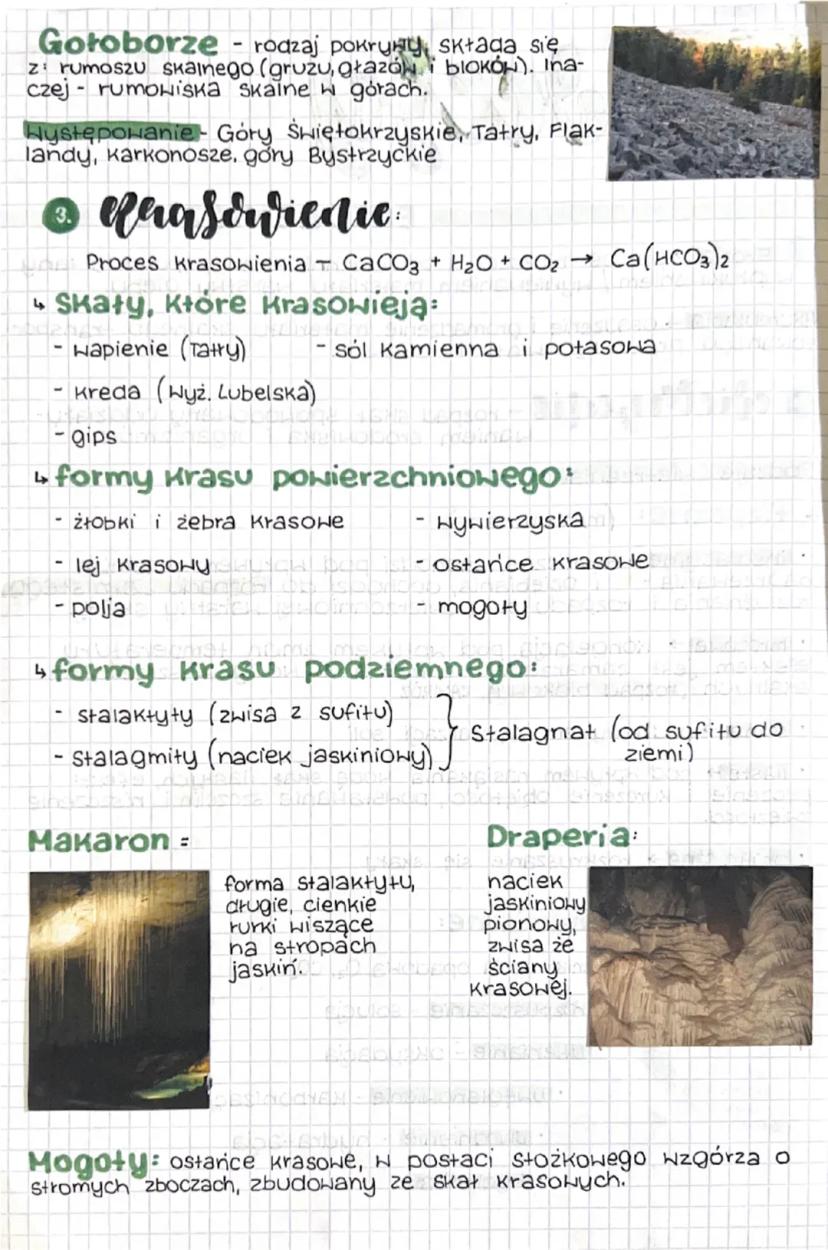 Gołoborze - rodzaj pokrywy, składa się
z: rumoszu skalnego (gruzu, głazów i bloków). Ina-
czej - rumowiska skalne w górach.
Występowanie - Góry Świętokrzyskie, Tatry, Flak-
landy, Karkonosze, góry Bystrzyckie
3. Krasowienie:
Proces krasowienia - CaCO3 + H2O + CO2 → Ca(HCO3)2
↳ Skały, które krasowieją:
- wapienie (Tatry) - sól kamienna i potasowa
- kreda (Wyż. Lubelska)
- gips
↳ formy krasu powierzchniowego:
- żłobki i żebra krasowe - wywierzyska
- lej krasowy - ostańce krasowe
- polja - mogoty
↳ formy krasu podziemnego:
- stalaktyty (zwisa z sufitu)
- stalagmity (naciek jaskiniowy) } Stalagnat (od sufitu do
ziemi)
Makaron =
forma stalaktytu,
długie, cienkie
rurki wiszące
na stropach
jaskiń.
Draperia:
naciek
jaskiniowy
pionowy,
zwisa że
ściany
krasowej.
Mogoty: ostańce krasowe, w postaci stożkowego wzgórza o
stromych zboczach, zbudowany ze skał krasowych.